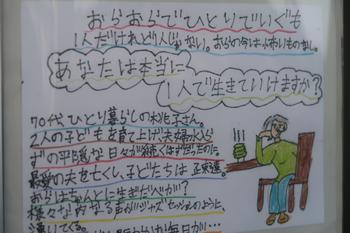 おらおらでひとりでいぐも
1人だけれど1人じゃない。おらの今は、こわいものなし。
あなたは本当に
1人で生きていけますか?
70代、ひとり暮らしの桃子さん。
2人の子どもを育て上げ、夫婦水入ら
ずの平穏な日々が続くはずだったのに
最愛の夫を亡くし、子どもたちは正東遠。
おらはちゃんとに生ぎだべが?
様々な内なる声がジャズセッションのように、
湧いてくる。